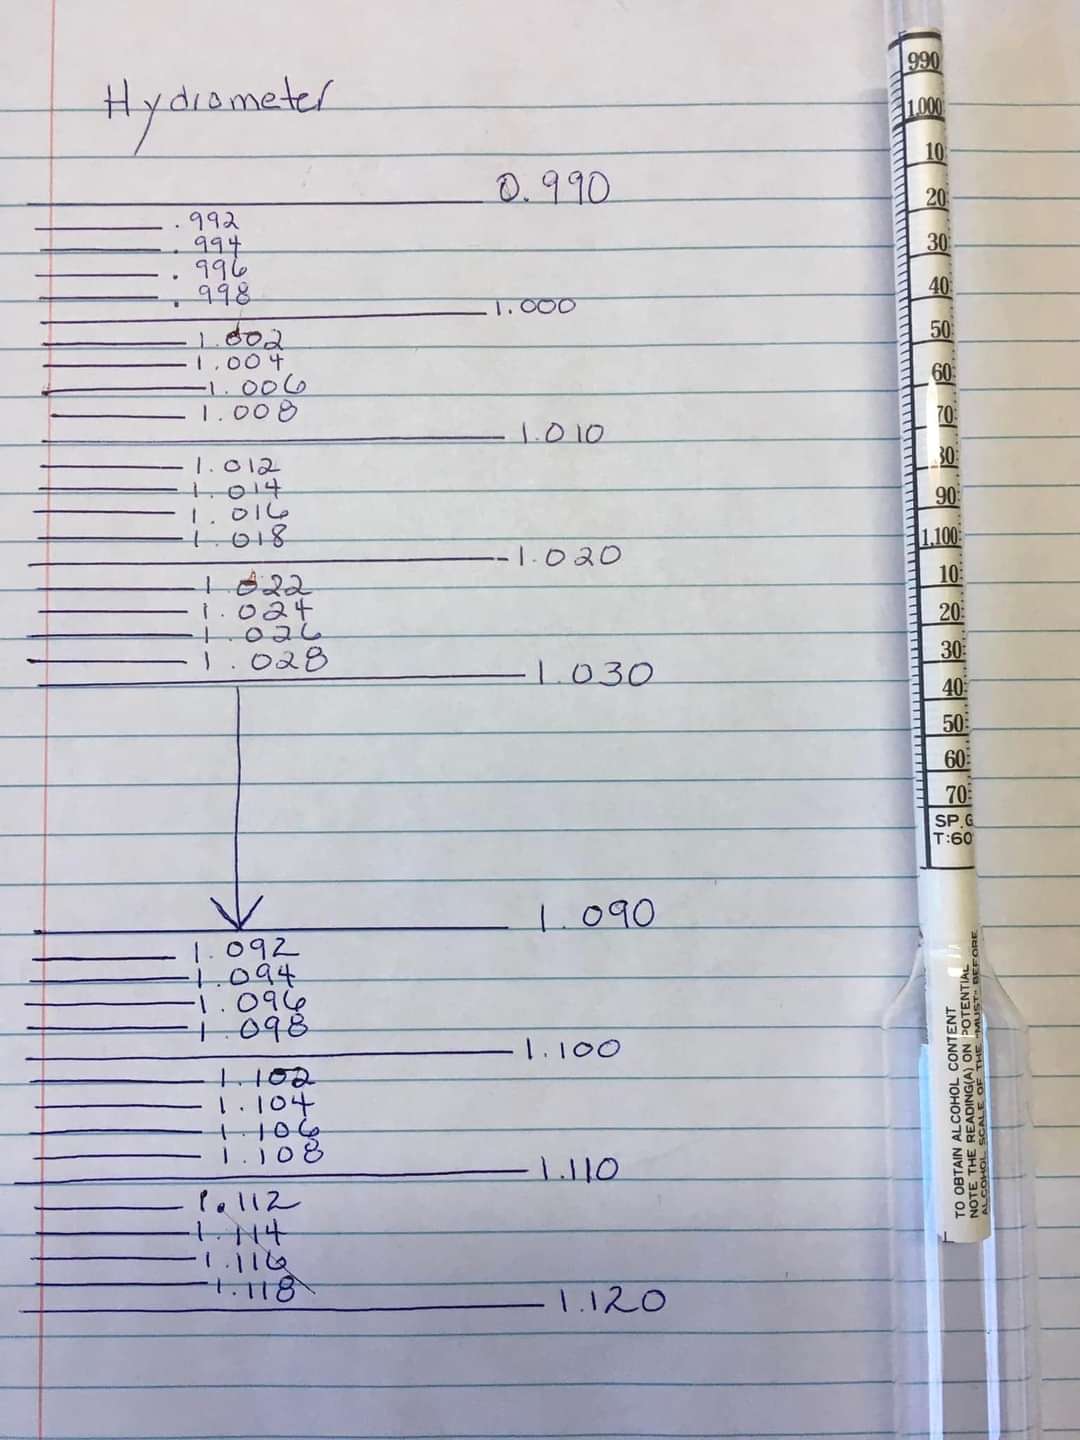 Hydrometer
0.990
.992
.994
.996
.998
1.000
1.002
1.004
1.006
1.008
1.010
1.012
1.014
1.016
1.018
1.020
1.022
1.024
1.026
1.028
1.030
1.090
1.092
1.094
1.096
1.098
1.100
1.102
1.104
1.106
1.108
1.110
1.112
1.114
1.116
1.118
1.120
990
1.000
10
20
30
40
50
60
70
80
90
1.100
10
20
30
40
50
60
70
SP.G
T:60
TO OBTAIN ALCOHOL CONTENT
NOTE THE READING(A) ON POTENTIAL
ALCOHOL SCALE OF THE "MUST" BEFORE